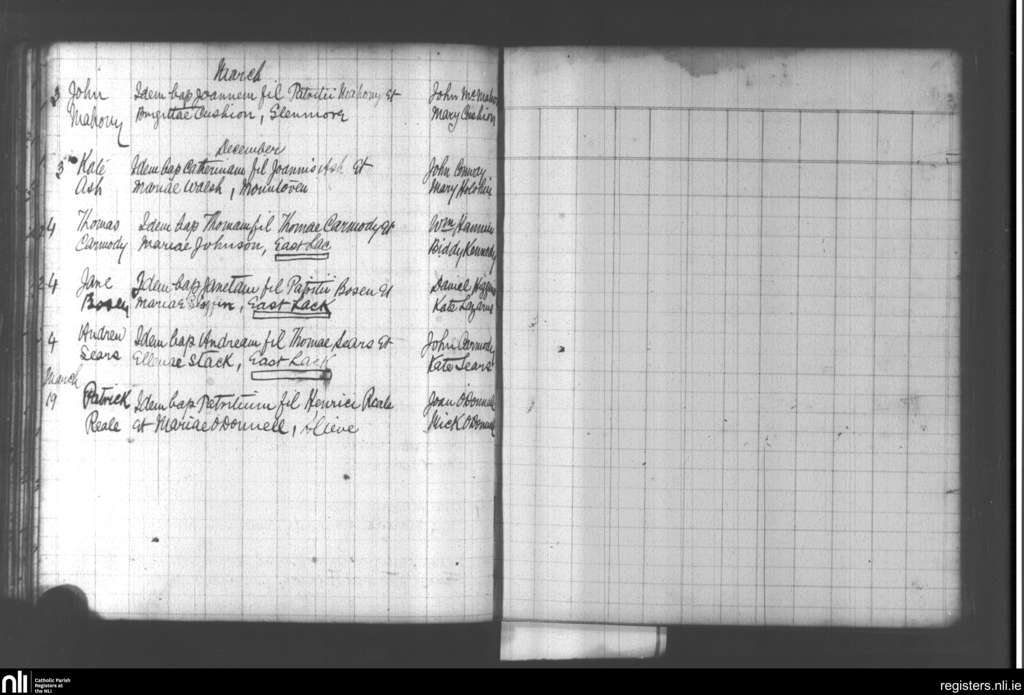 March
John Idem bap Joannem fil Patritii Mahony et John McMahon
Mahony Brigittae Cushion, Glenmore Mary Cushion
December
3 Kate Idem bap Catherinam fil Joannis Ash et John Conway
Ash Mariae Walsh, Mountoven Mary
4 Thomas Idem bap Thomam fil Thomae Carmody et Wm
Carmody Mariae Johnson, East Lac Biddy Kennedy
24 Jane Idem bap Janetam fil Patritii Bosen et Daniel
Bosen Mariae, East Lack Kate Lazarus
4 Andrew Idem bap Andream fil Thomae Sears et John Carmody
Sears Ellenae Stack, East Lack Kate Sears
March
19 Patrick Idem bap Patritium fil Henrici Reale Joan O'Donnell
Reale et Mariae O'Donnell, Slieve Mick O'Donnell
nli Catholic Parish
Registers at
the NLI
registers.nli.ie